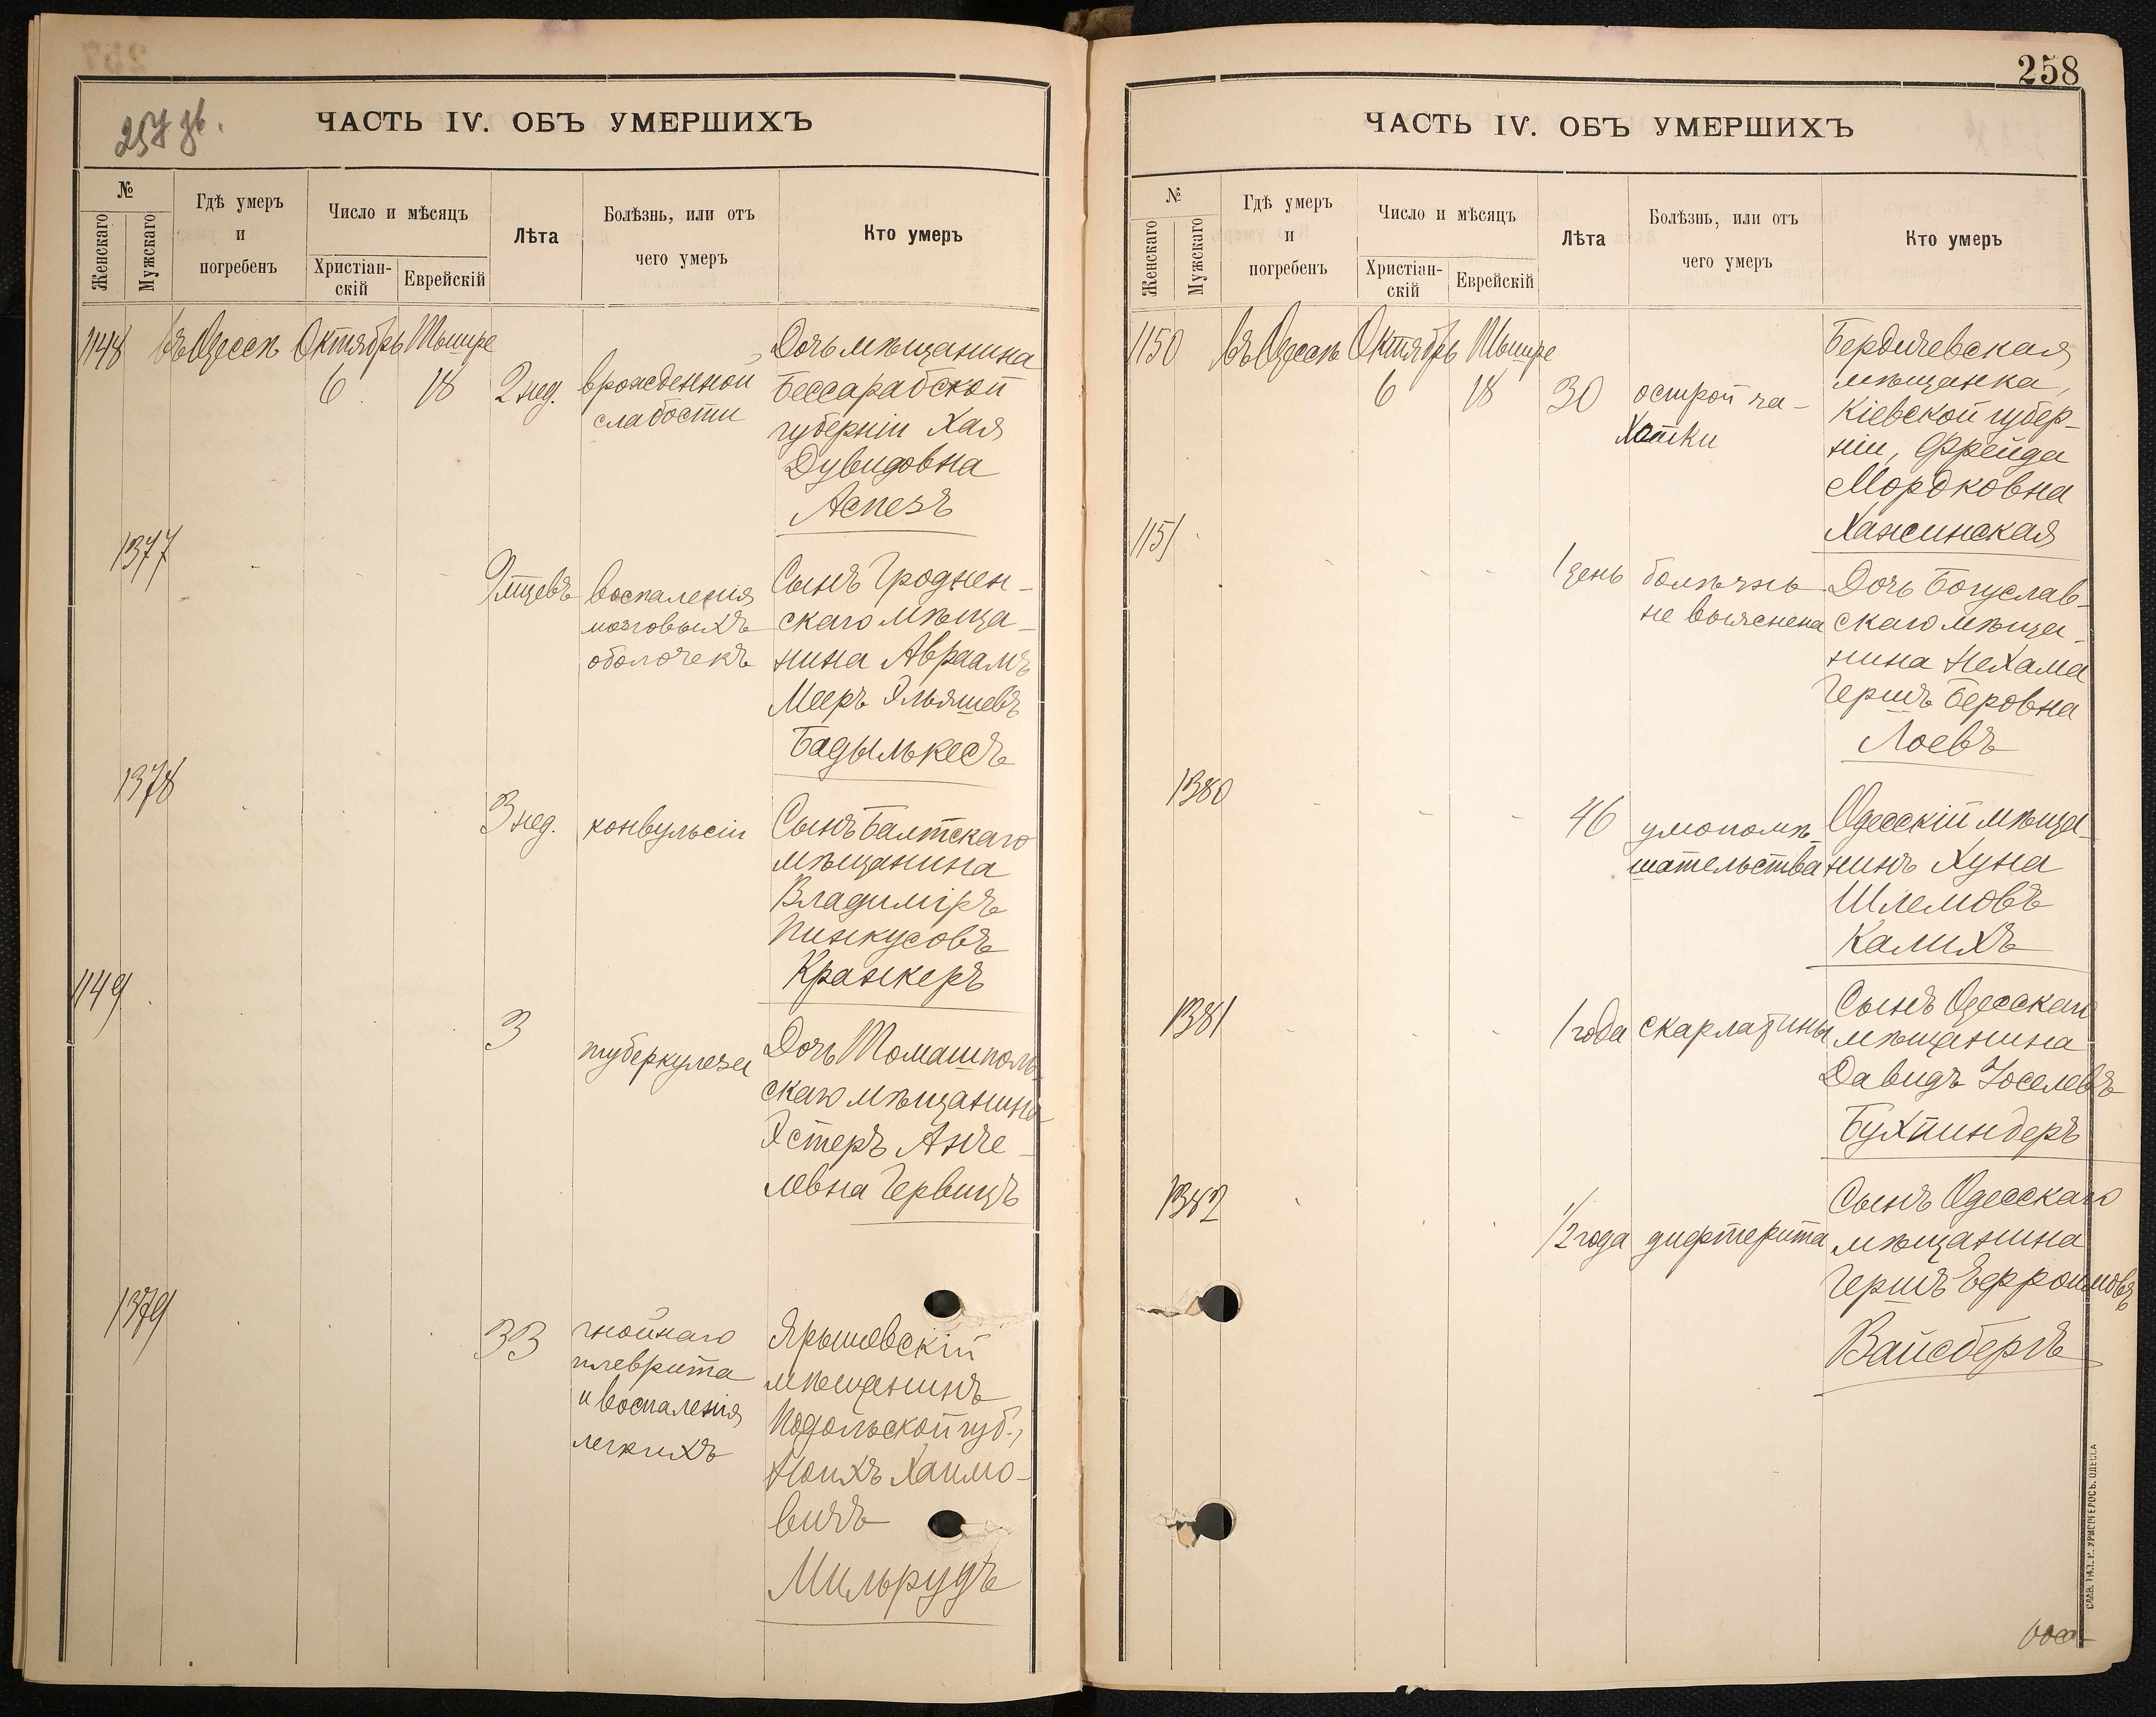 257 зв.
ЧАСТЬ IV. ОБЪ УМЕРШИХЪ
№
Женскаго
Мужскаго
Гдѣ умеръ
и
погребенъ
Число и мѣсяцъ
Христіан-
скій
Еврейскій
Лѣта
Болѣзнь, или отъ
чего умеръ
Кто умеръ
1148
въ Одессѣ
Октябрь
6
Тышре
18
2 нед.
врожденной
слабости
Дочь мѣщанина
Бессарабской
губерніи Хая
Дувидовна
Аспезъ
1377
9 мцевъ
воспаленія
мозговыхъ
оболочекъ
Сынъ Гроднен-
скаго мѣща-
нина Авраамъ
Мееръ Эльяшевъ
Бадылькесъ
1378
3 нед.
конвульсіи
Сынъ Балтскаго
мѣщанина
Владиміръ
Пинкусовъ
Кранкеръ
1149
3
туберкулеза
Дочь Томашполь-
скаго мѣщанина
Эстеръ Анче-
левна Гервицъ
1379
33
гнойнаго
плеврита
и воспаленія
легкихъ
Ярышевскій
мѣщанинъ
Подольской губ.,
Ноихъ Хаимо-
вичъ
Мильрудъ
258
ЧАСТЬ IV. ОБЪ УМЕРШИХЪ
№
Женскаго
Мужскаго
Гдѣ умеръ
и
погребенъ
Число и мѣсяцъ
Христіан-
скій
Еврейскій
Лѣта
Болѣзнь, или отъ
чего умеръ
Кто умеръ
1150
въ Одессѣ
Октябрь
6
Тышре
18
30
острой ча-
хотки
Бердичевская
мѣщанка,
Кіевской губер-
ніи, Фрейда
Мордковна
Хажинская
1151
1 день
болѣзнь
не выяснена
Дочь Богуслав-
скаго мѣща-
нина Нехама
Гершъ Беровна
Лоевъ
1380
46
умопомѣ-
шательства
Одесскій мѣща-
нинъ Хуна
Шлемовъ
Калихъ
1381
1 года
скарлатины
Сынъ Одесскаго
мѣщанина
Давидъ Іоселевъ
Бухбиндеръ
1382
1/2 года
дифтерита
Сынъ Одесскаго
мѣщанина
Гершъ Ефроимовъ
Вайсбергъ